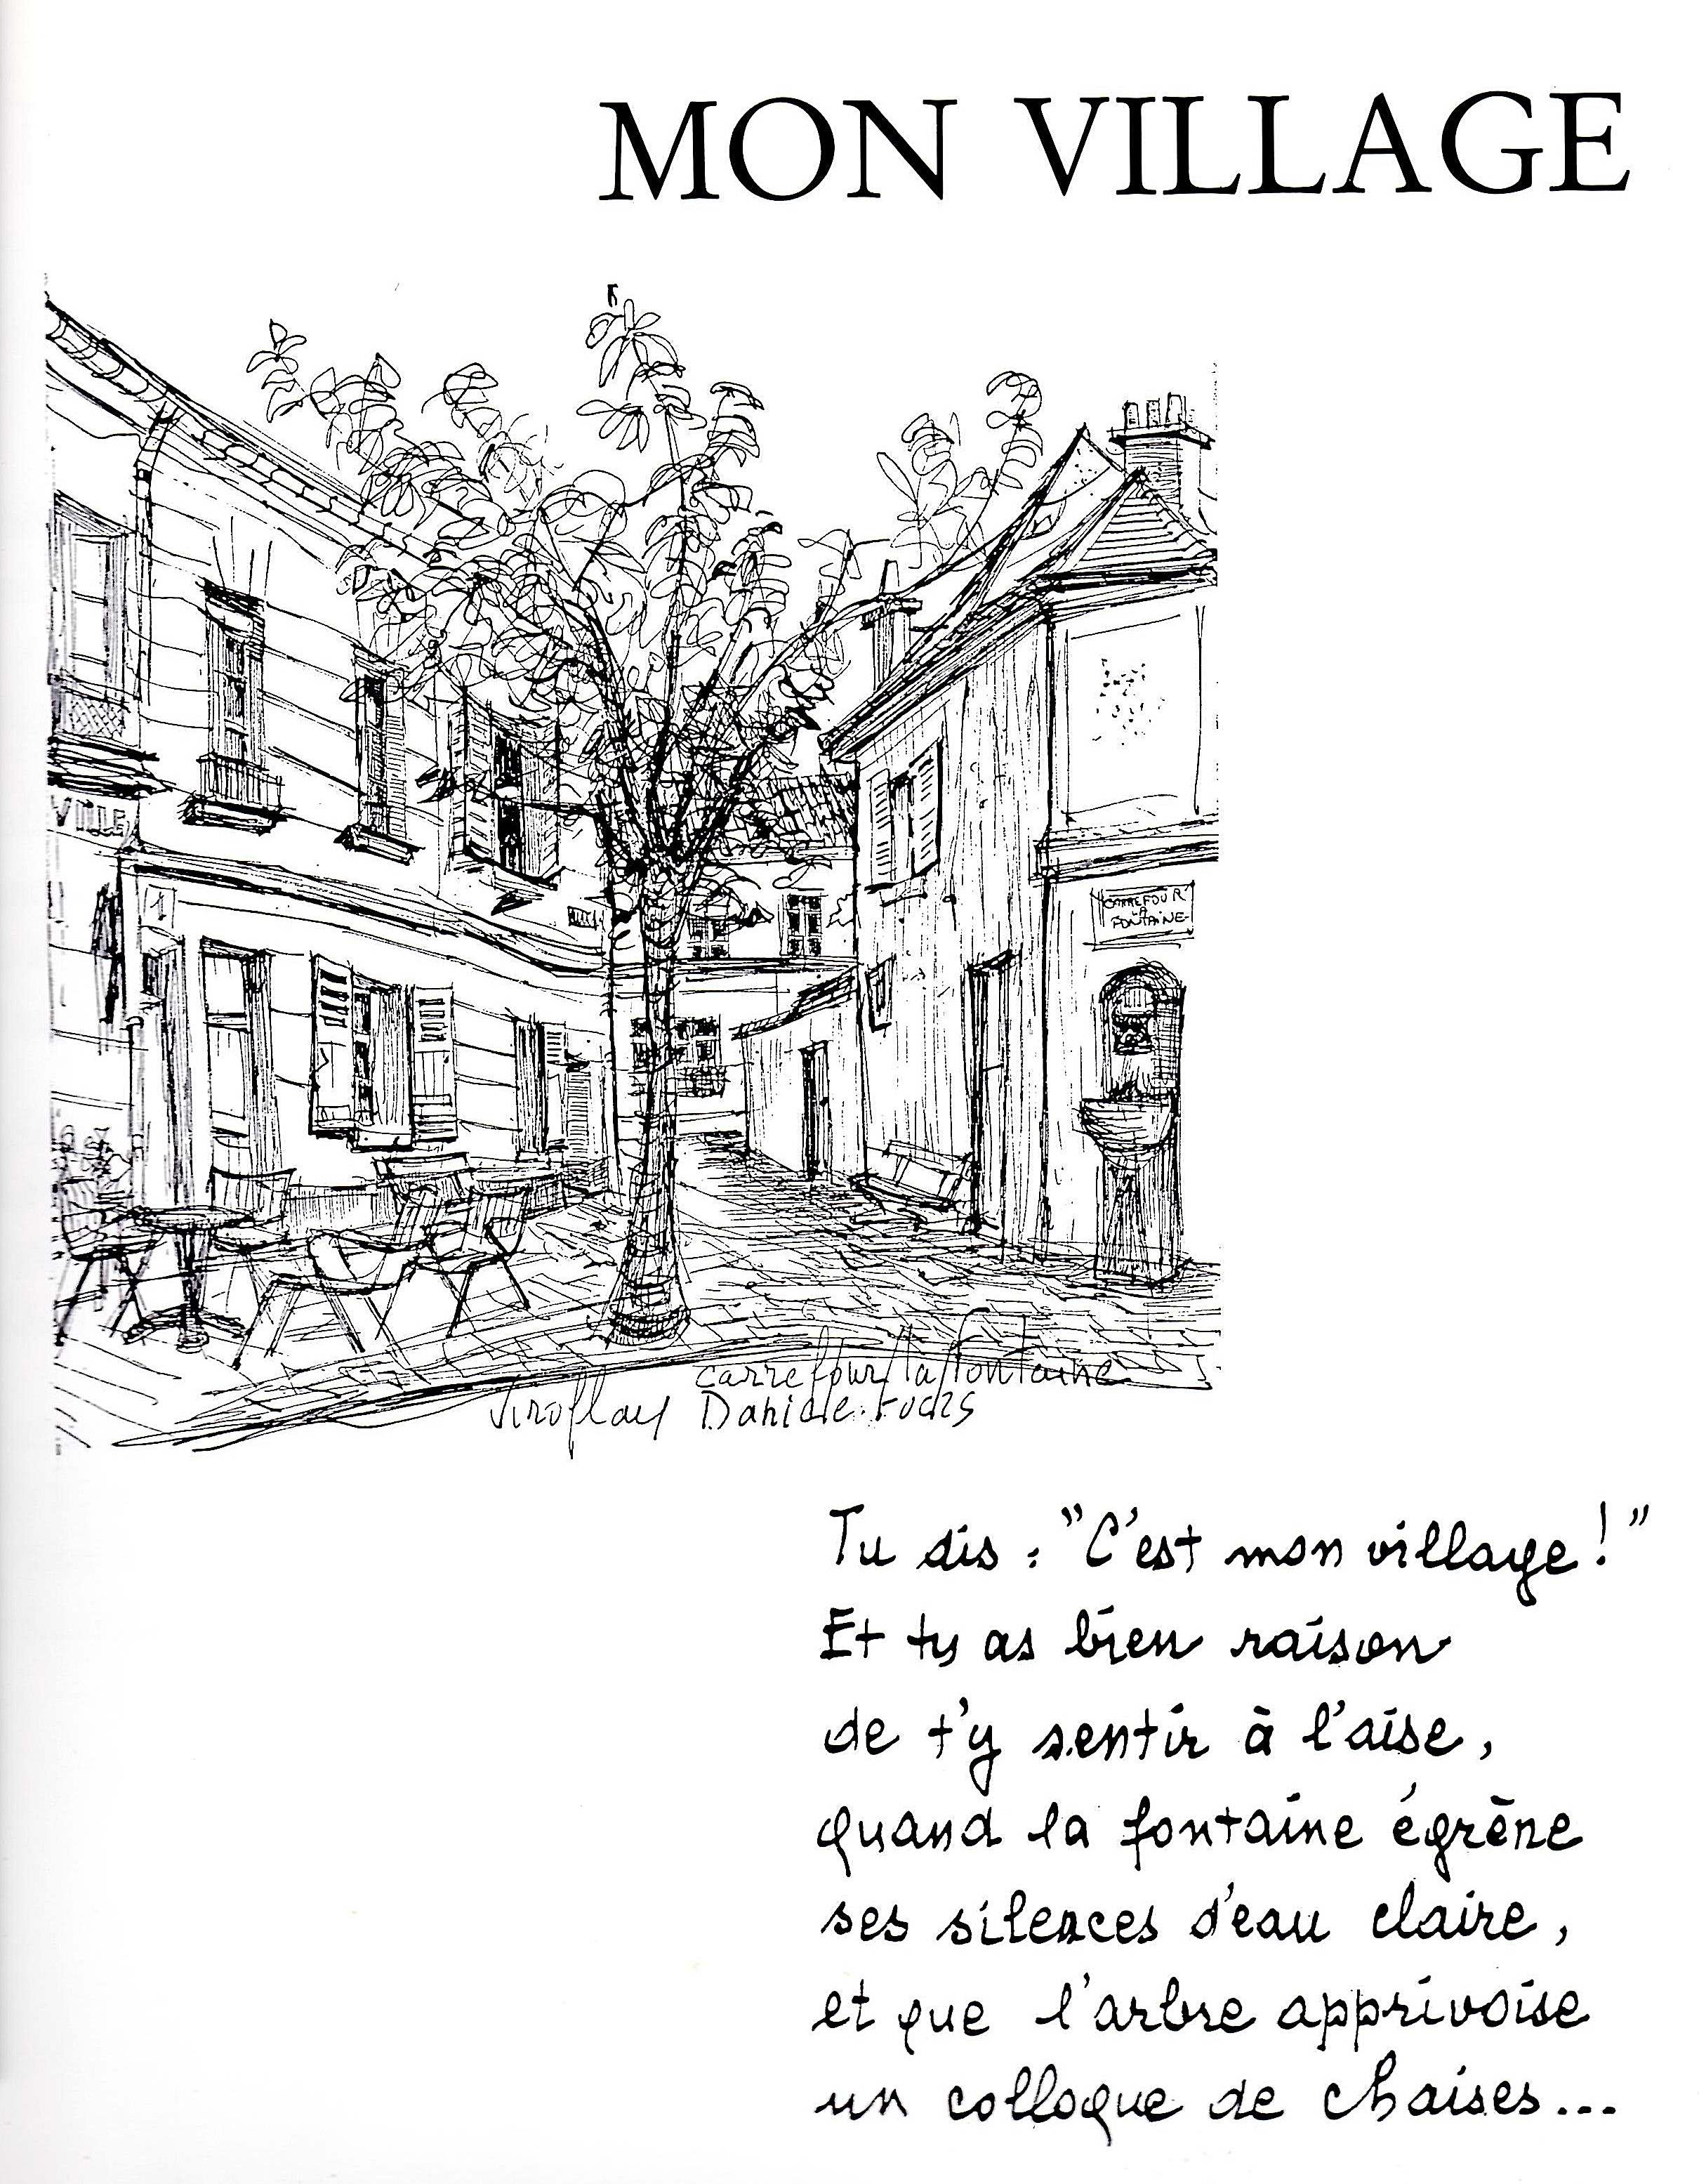 MON VILLAGE
VILLE
1
CARREFOUR
LA
FONTAINE
carrefour la fontaine
Viroflay Danièle Fuchs
Tu dis : "C'est mon village ! "
Et tu as bien raison
de t'y sentir à l'aise,
quand la fontaine égrène
ses silences d'eau claire,
et que l'arbre apprivoise
un colloque de chaises...